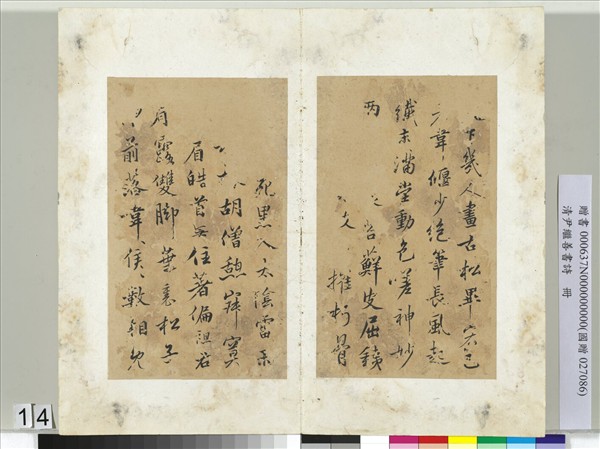 下幾人畫古松畢宏已
韋偃少絕筆長風起
纖末滿堂動色嗟神妙
兩 苔蘚皮屈鐵
交 摧朽骨
死黑入太陰雷雨
胡僧憩寂寞
眉皓首無住著偏袒右
肩露雙脚葉裏松子
前落韋〻侯〻數相見
贈書 000637N000000000(國贈 027086)
清尹繼善書詩 冊
14